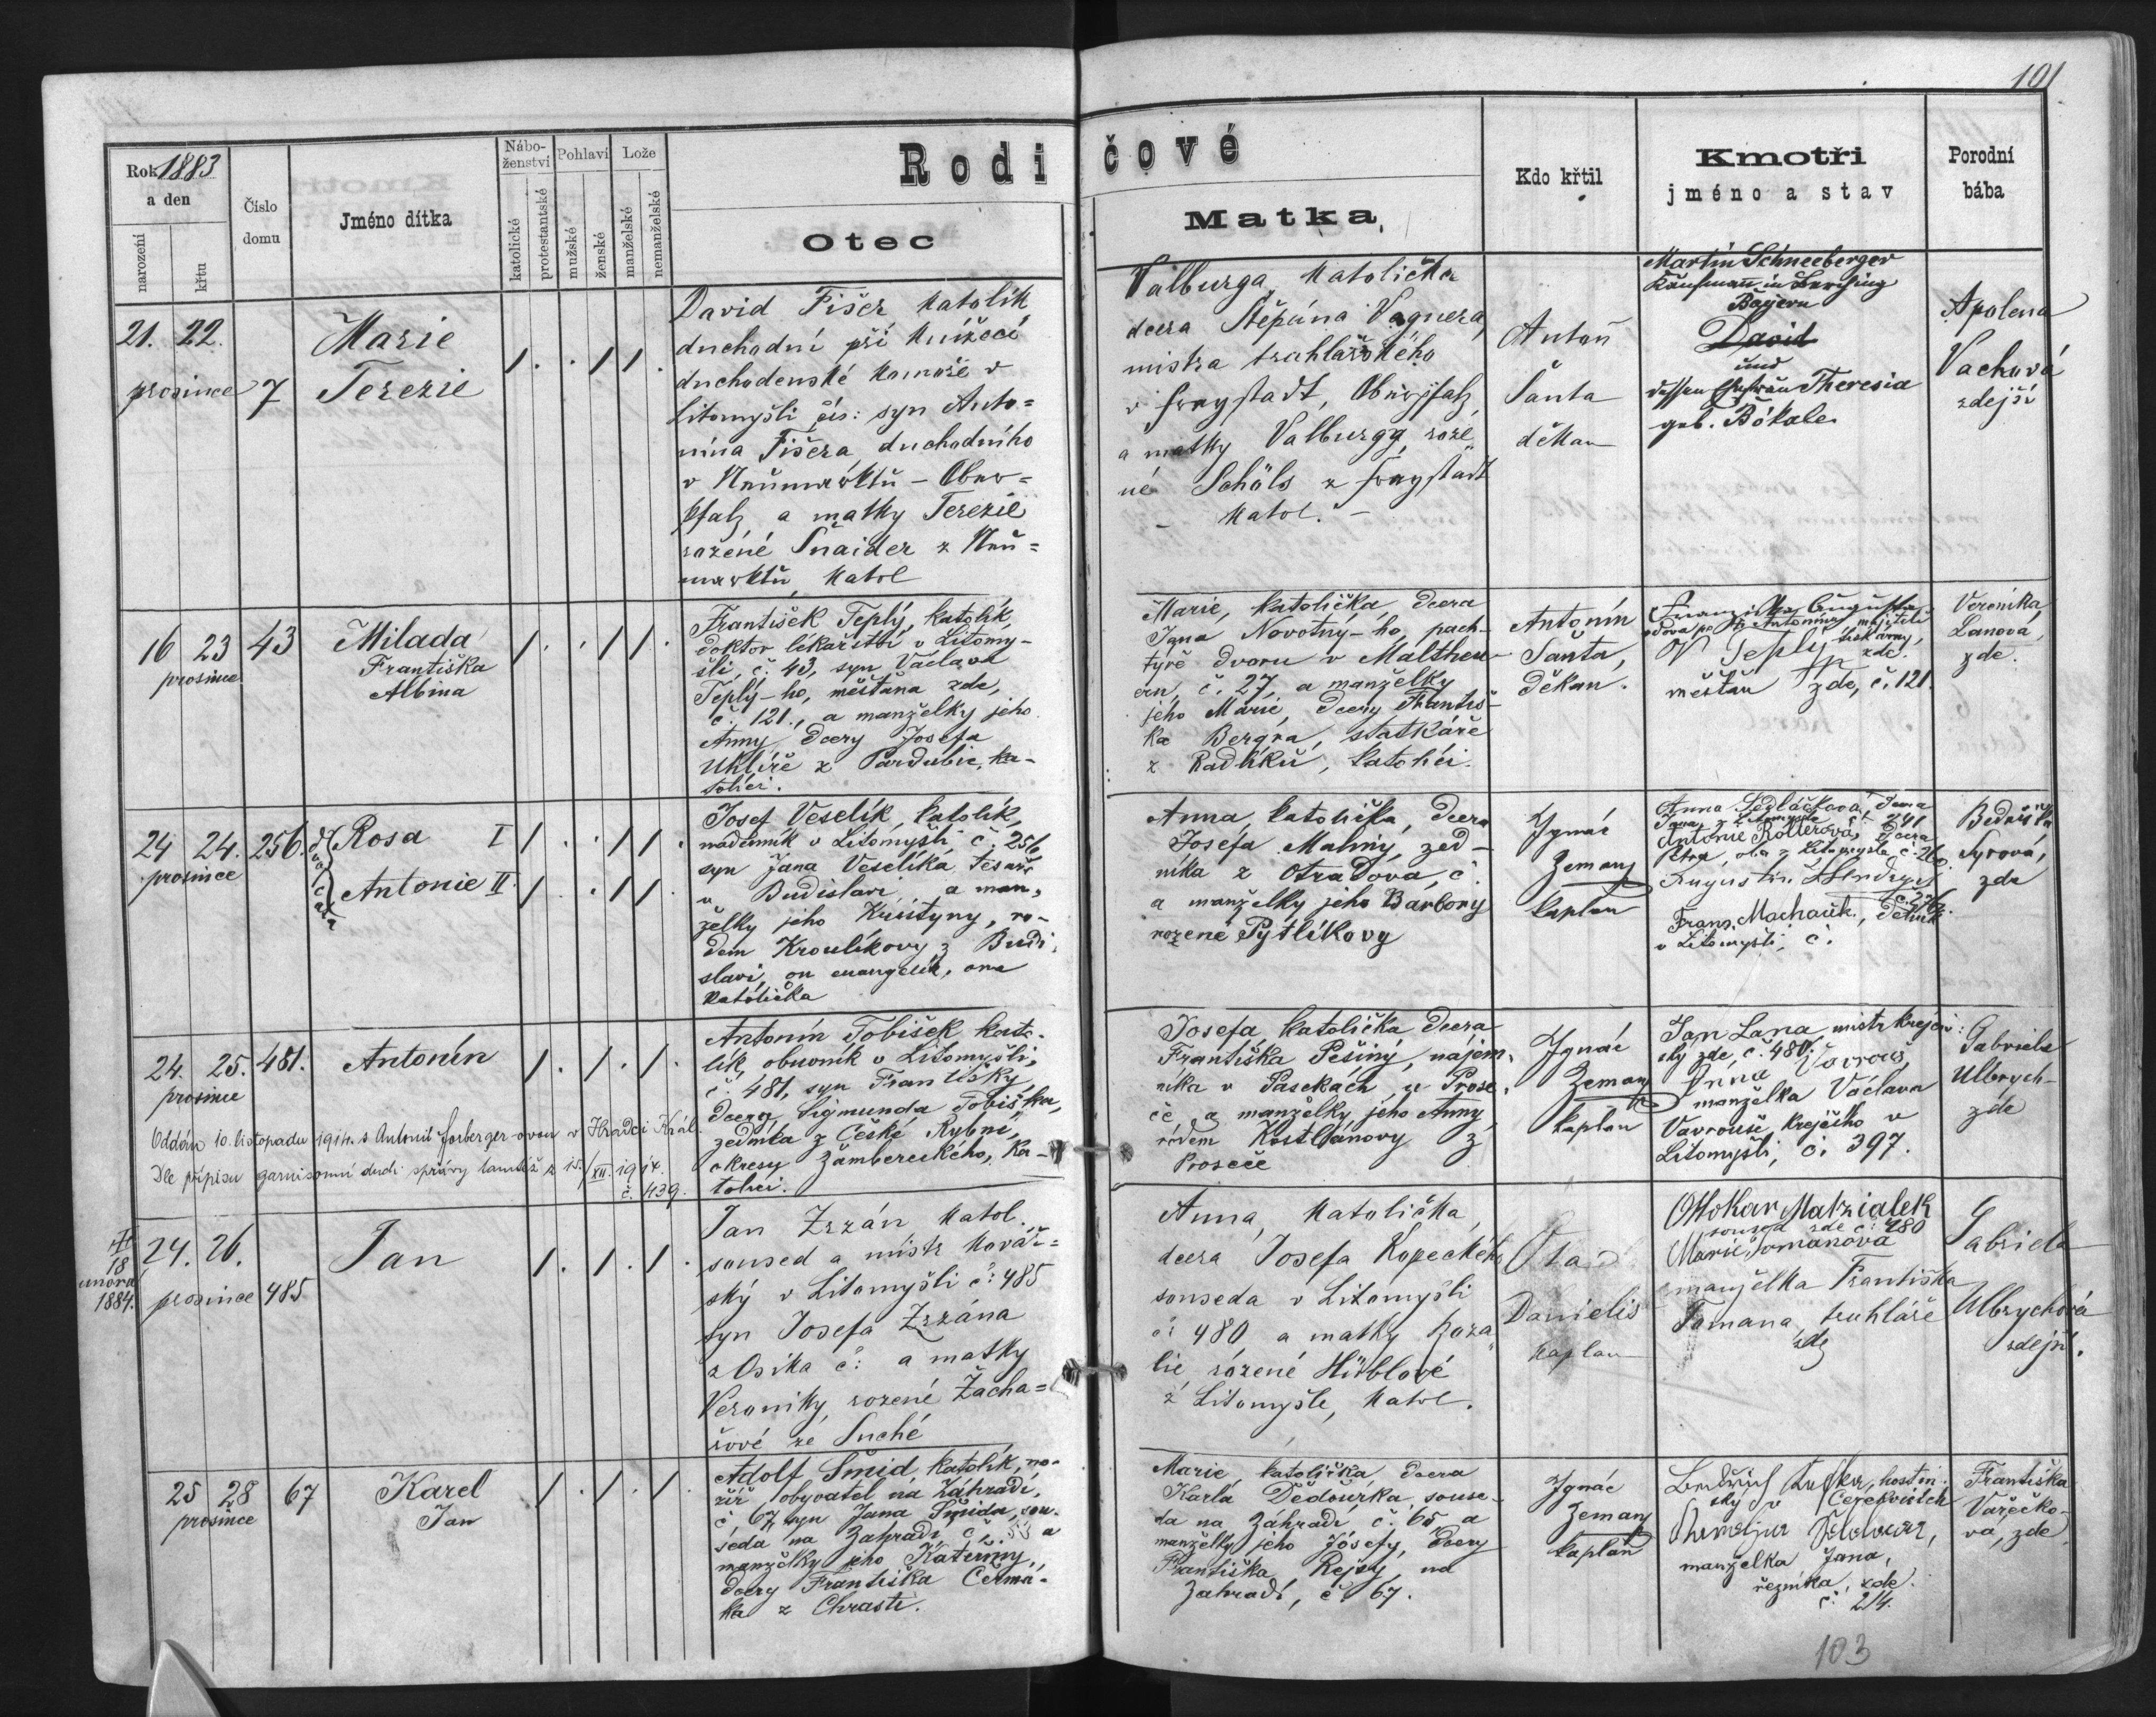 101
Rok 1883
a den
narození
křtu
Číslo
domu
Jméno dítka
Nábo-
ženství
katolické
protestantské
Pohlaví
mužské
ženské
Lože
manželské
nemanželské
Rodičové
Otec
Matka
Kdo křtil
Kmotři
jméno a stav
Porodní
bába
21. 22.
prosince 7
Marie
Terezie
David Fišer katolík
duchodní při knížecí
duchodenské komoře v
Litomyšli čís: syn Anto=
nína Fišera duchodního
v Neumarktu - Ober=
pfalz a matky Terezie
rozené Šnaider z Neu=
marktu, katol
Valburga, katolička
dcera Štěpána Vagnera,
mistra truhlářského
v Freystadt, Oberpfalz,
a matky Valburgy, roze
né Schöls z Freystadt
- katol. -
Anton
Šanta
děkan
Martin Schneeberger
Kaufmann in
Bayern
David
und
dessen Ehefrau Theresia
geb. Bökale
Apolena
Vachová
zdejší
16 23 43
prosince
Milada
Františka
Albina
František Teplý, katolík,
doktor lékařství v Litomy-
šli, č. 43, syn Václava
Teplý-ho, měšťana zde,
č. 121., a manželky jeho
Anny, dcery Josefa
Uklíře z Pardubic, ka-
tolíci.
Marie, katolička, dcera
Ign. Novotný-ho, pach-
týře dvoru v Maltheu-
ern, č. 27, a manželky
jeho Marie, dcery Františ-
ka Bergra, statkáře
z Radlíků, katolíci.
Antonín
Šanta,
děkan.
Franziska Augusta
vdova po Antonínu, majiteli
tiskárny,
V Teplý zde.
měšťan zde, č. 121.
Veronika
Lanová,
zde.
24 24. 256.
prosince
dvojčata
Rosa I
Antonie II
Josef Veselík, katolík,
nádenník v Litomyšli, č. 256
syn Jana Veselíka, tesaře
v Budislavi, a man-
želky jeho Kristyny, ro-
dem Kroulíkovy z Budi-
slavi, on evangelík, ona
katolička
Anna, katolička, dcera
Josefa Maliny, zed-
níka z Otradova, č.
a manželky jeho Barbory
rozené Pytlíkovy
Ignác
Zeman
kaplan
Anna Sedláčkova, dcera
Jana, z Litomyšle č. 241
Antonie Rollerová, dcera
Petra, oba z Litomyšle č.
Augustin
Franz. Machaček, dělník
v Litomyšli, č.
Bedřiška
Syrová,
zde
24. 25. 481.
prosince
Antonín
Antonín Tobišek, kato-
lík, obuvník v Litomyšli,
č. 481, syn Františky,
dcery Sigmunda Tobiška,
zedníka z České Rybné,
okresu Žambereckého, ka-
tolíci.
Oddán 10. listopadu 1914. s Antonií Forberger-ovou v Hradci Král.
Dle přípisu garnisonní duch. správy tamtéž z 15./XII. 1914.
č. 439.
Josefa, katolička, dcera
Františka Pešiny, nájem-
níka v Pasekách, u Prose-
če a manželky jeho Anny,
rodem Kostlánovy z
Proseče
Ignác
Zeman
kaplan
Jan Lana, mistr krejčov-
ský zde, č. 480.
Anna Vavrouš,
manželka Václava
Vavrouše, krejčího v
Litomyšli, č. 397.
Gabriela
Ulbrych-
zde
18
února
1884.
24. 26.
prosince 485
Jan
Jan Zrzán katol.
soused a mistr kovář=
ský v Litomyšli č: 485
syn Josefa Zrzána
z Osíka č: a matky
Veroniky, rozené Zacha=
řové ze Suché
Anna, katolička,
dcera Josefa Kopeckého
souseda v Litomyšli
č: 480 a matky Roza
lie, rozené Hüblové
z Litomyšle, katol.
Ota
Danielis
kaplan
Ottokar Matzialek
soused zde č: 480
Marie Tomanová
manželka Františka
Tomana, truhláře
zde
Gabriela
Ulbrychová
zdejší.
25 28 67
prosince
Karel
Jan
Adolf Šmid, katolík, no-
žíř, obyvatel na Záhradí,
č. 67, syn Jana Šmida, sou-
seda na Zahradí č. 53 a
manželky jeho Kateřiny,
dcery Františka Čermá-
ka z Chrasti.
Marie, katolička, dcera
Karla Dědourka, souse-
da na Záhradi č. 65, a
manželky jeho Josefy, dcery
Františka Rejsy, na
Zahradí, č. 67.
Ignác
Zeman
kaplan
hostin-
ský v Cerekvicích
manželka Jana,
řezníka, zde.
č. 214.
Františka
Vařečko-
vá, zde
103